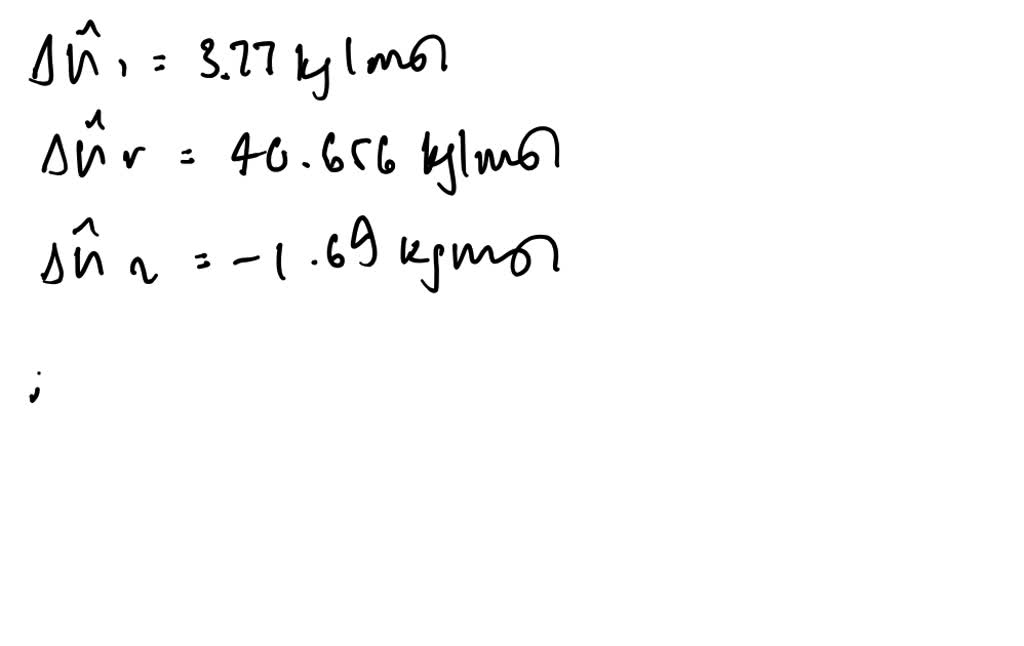 Δĥ₁ = 3.77 kj/mol
Δĥv = 40.656 kj/mol
Δĥ₂ = -1.69 kjmol
;